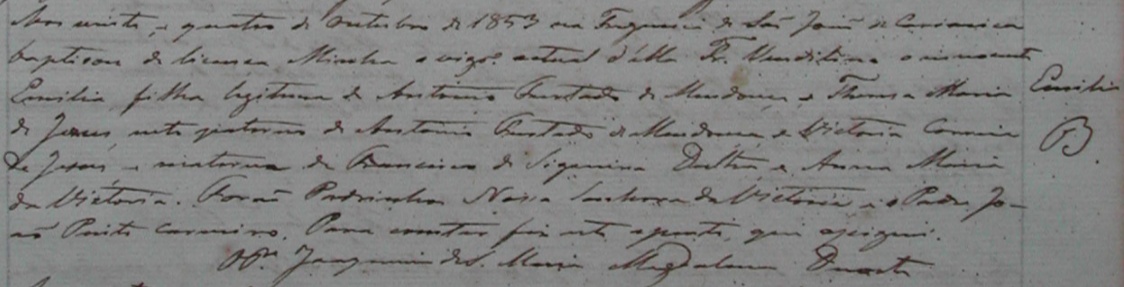 Aos vinte, e quatro de outubro de 1853 na Freguesia de São João de Cariacica
baptisou de licença Minha o vigrº actual d'ella Fr. Ubaldino o innocente
Emilia, filha legitima de Antonio Furtado de Mendonça e Theresa Maria
de Jesus, neta paterna de Antonio Furtado de Mendonça, e Victoria Correia
de Jesus e materna de Francisco de Siqueira Dultra e Anna Maria
da Victoria. Forão Padrinhos Nossa Senhora da Victoria e o Padre Jo-
ão Pinto Carneiro. Para constar fiz este assento, que assignei.
Joaquim de S. Maria Magdalena Duarte
Emilia
B.